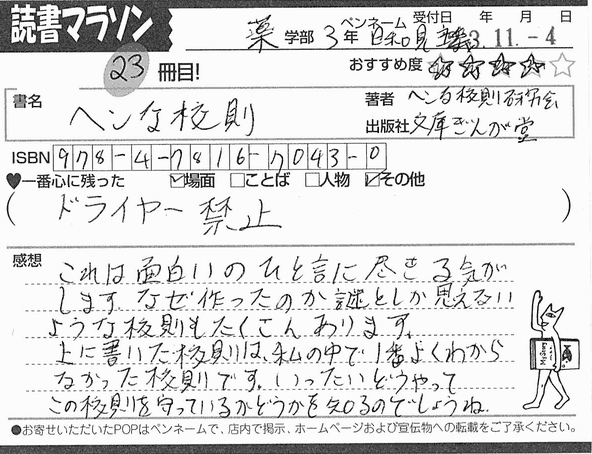 読書マラソン
23 冊目!
薬 学部 3年 ペンネーム 受付日 年 月 日
3.11.-4
おすすめ度 ☆☆☆☆☆
書名 ヘンな校則
著者 ヘンな校則研究会
出版社 文庫ぎんが堂
ISBN 978-4-7816-7043-0
♥一番心に残った ☑場面 □ことば □人物 ☑その他
( ドライヤー禁止 )
感想
これは面白いのひと言に尽きる気が
します。なぜ作ったのか謎としか思えない
ような校則もたくさんあります。
上に書いた校則は、私の中で1番よくわから
なかった校則です。いったいどうやって
この校則を守っているかどうかを知るのでしょうね。
●お寄せいただいたPOPはペンネームで、店内で掲示、ホームページおよび宣伝物への転載をご了承ください。